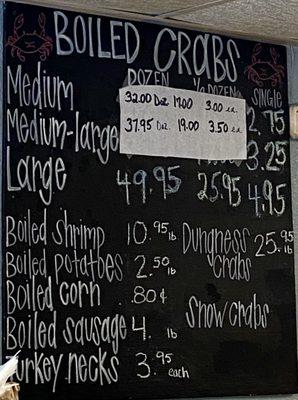 BOILED CRABS
DOZEN ½ DOZEN SINGLE
Medium 32.00 Doz 17.00 3.00 ea. 2.75
Medium-large 37.95 Doz 19.00 3.50 ea. 3.25
Large 49.95 25.95 4.95
Boiled Shrimp 10.95 lb Dungness Crabs 25.95 lb
Boiled potatoes 2.50 lb
Boiled corn .80¢ Snow crabs
Boiled sausage 4. lb
Turkey necks 3.95 each